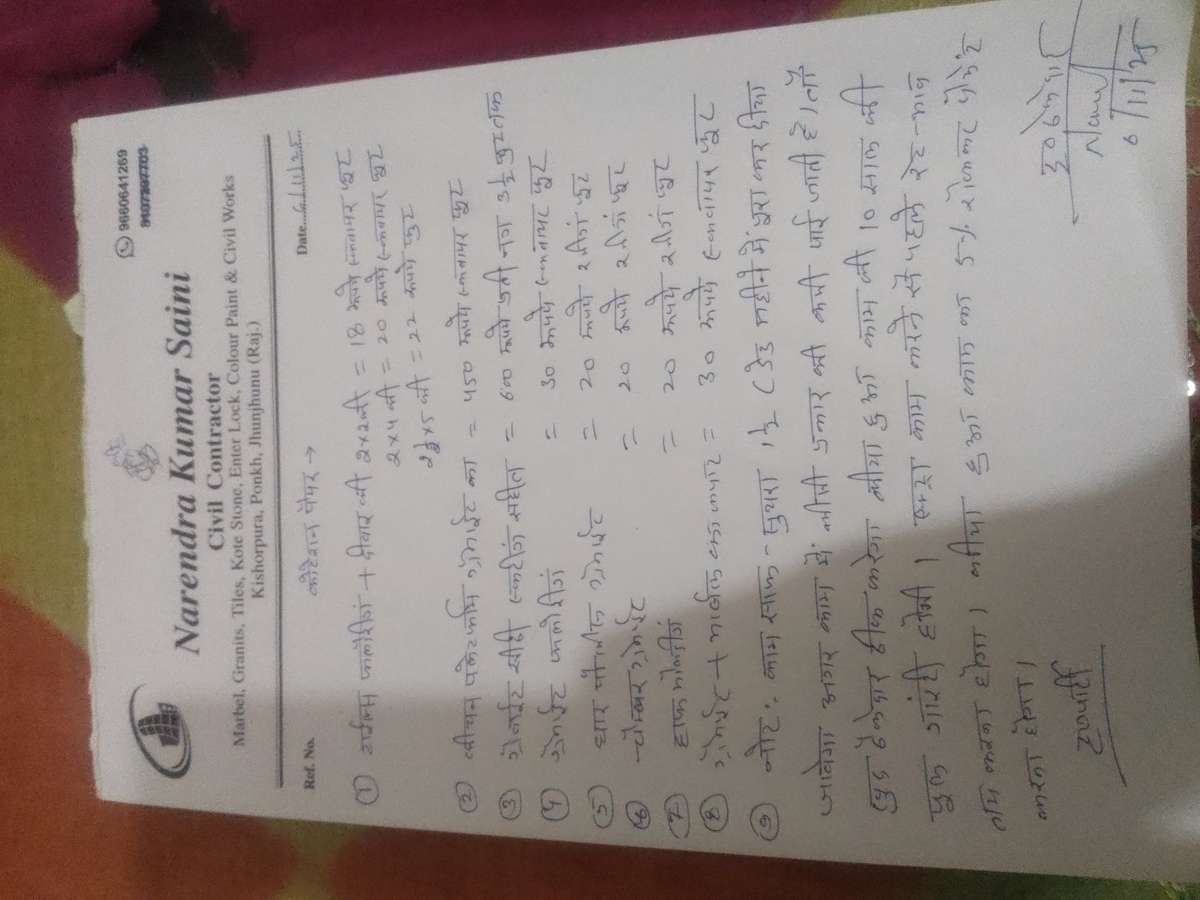 9660641269
9107307703
Narendra Kumar Saini
Civil Contractor
Marbel, Granits, Tiles, Kote Stone, Enter Lock, Colour Paint & Civil Works
Kishorpura, Ponkh, Jhunjhunu (Raj.)
Ref. No. Date...6/11/25
कोटेशन पेपर →
① टाईल्स फ्लोरिंग + दीवार की 2×2 की = 18 रूपये स्कवायर फुट
2×4 की = 20 रूपये स्कवायर फुट
2½×5 की = 22 रूपये फुट
② कीचन प्लेटफार्म ग्रेनाईट का = 450 रूपये स्कवायर फुट
③ ग्रेनाईट सीढी स्कर्टिंग सहित = 600 रूपये प्रती नग 3½ फुट तक
④ ग्रेनाईट फ्लोरींग = 30 रूपये स्कवायर फुट
⑤ धार पॉलीस ग्रेनाईट = 20 रूपये रनींग फुट
⑥ चेम्बर ग्रेनाईट = 20 रूपये रनींग फुट
⑦ हाफ मोल्डींग = 20 रूपये रनींग फुट
⑧ ग्रेनाईट + मार्बल = 30 रूपये स्कवायर फुट
⑨ नोट: काम साफ-सुथरा 1½ (डेढ महीने में पुरा कर दीया
जावेगा अगर काम में कीसी प्रकार की कमी पाई जाती है। तो
खुद ठेकेदार ठीक करेगा कीया हुआ काम की 10 साल की
गारंटी होगी। काम करने से पहले रेट-भाव
तय करना होगा। कीया हुआ काम का 5% रोककर पेमेंट
करना होगा।
रनपार्टी ठेकेदार
6/11/25